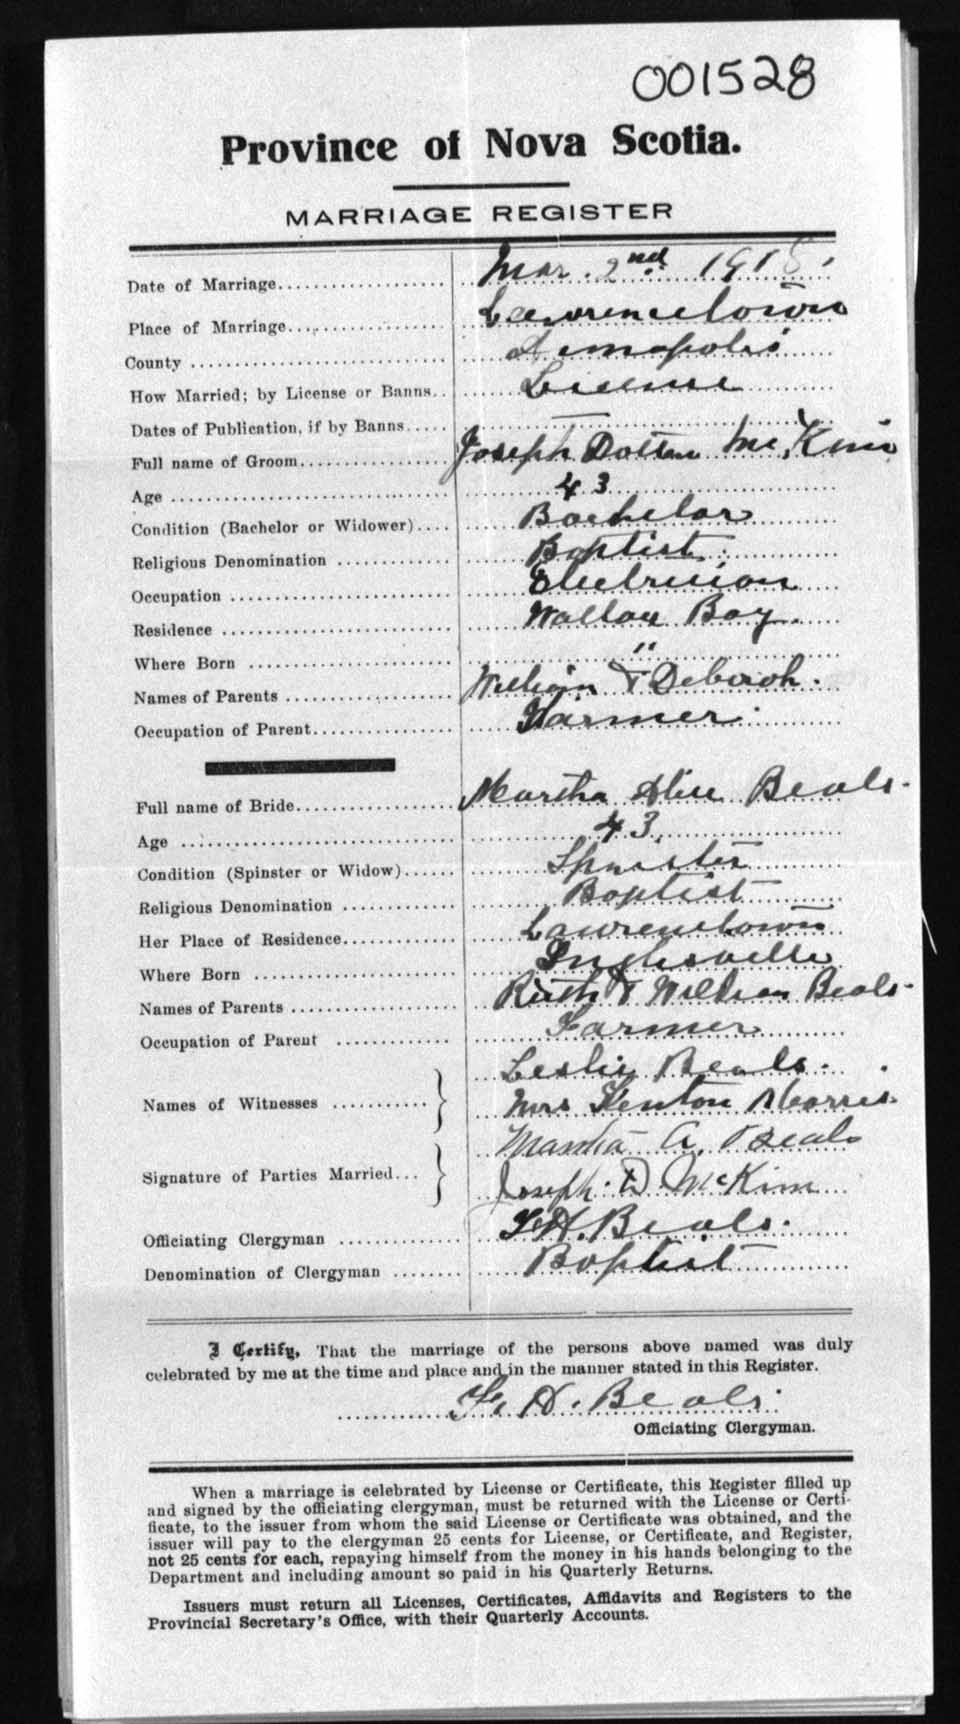 001528
Province of Nova Scotia.
MARRIAGE REGISTER
Date of Marriage Mar. 2nd 1918.
Place of Marriage Lawrencetown
County Annapolis
How Married; by License or Banns License
Dates of Publication, if by Banns
Full name of Groom Joseph Dotten McKim
Age 43
Condition (Bachelor or Widower) Bachelor
Religious Denomination Baptist
Occupation Electrician
Residence Wallace Bay
Where Born "
Names of Parents William & Deborah.
Occupation of Parent Farmer
Full name of Bride Martha Alice Beals.
Age 43
Condition (Spinster or Widow) Spinster
Religious Denomination Baptist
Her Place of Residence Lawrencetown
Where Born Inglisville
Names of Parents Ruth & William Beals.
Occupation of Parent Farmer
Names of Witnesses Leslie Beals.
Mrs Kenton Morris.
Signature of Parties Married Martha A. Beals
Joseph D. McKim
Officiating Clergyman F. H. Beals.
Denomination of Clergyman Baptist
I Certify, That the marriage of the persons above named was duly
celebrated by me at the time and place and in the manner stated in this Register.
F. H. Beals.
Officiating Clergyman.
When a marriage is celebrated by License or Certificate, this Register filled up
and signed by the officiating clergyman, must be returned with the License or Certi-
ficate, to the issuer from whom the said License or Certificate was obtained, and the
issuer will pay to the clergyman 25 cents for License, or Certificate, and Register,
not 25 cents for each, repaying himself from the money in his hands belonging to the
Department and including amount so paid in his Quarterly Returns.
Issuers must return all Licenses, Certificates, Affidavits and Registers to the
Provincial Secretary's Office, with their Quarterly Accounts.